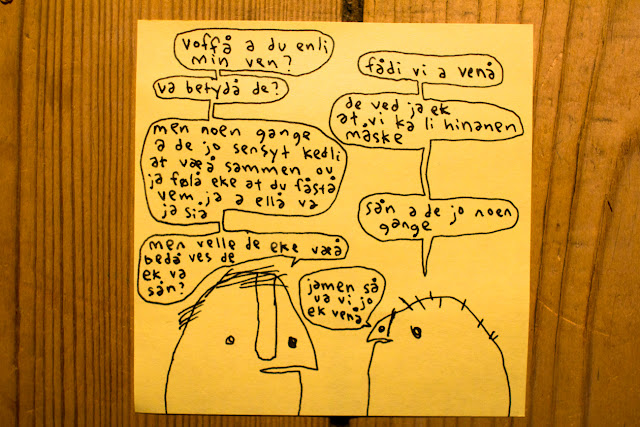 voffå a du enli
min ven?
fådi vi a venå
va betydå de?
de ved ja ek
at vi ka li hinanen
måske
men noen gange
a de jo sensyt kedli
at væå sammen ov
ja følå eke at du fåstå
vem ja a ellå va
ja siå
sån a de jo noen
gange
men velle de eke væå
bedå ves de
ek va
sån?
jamen så
va vi jo
ek venå